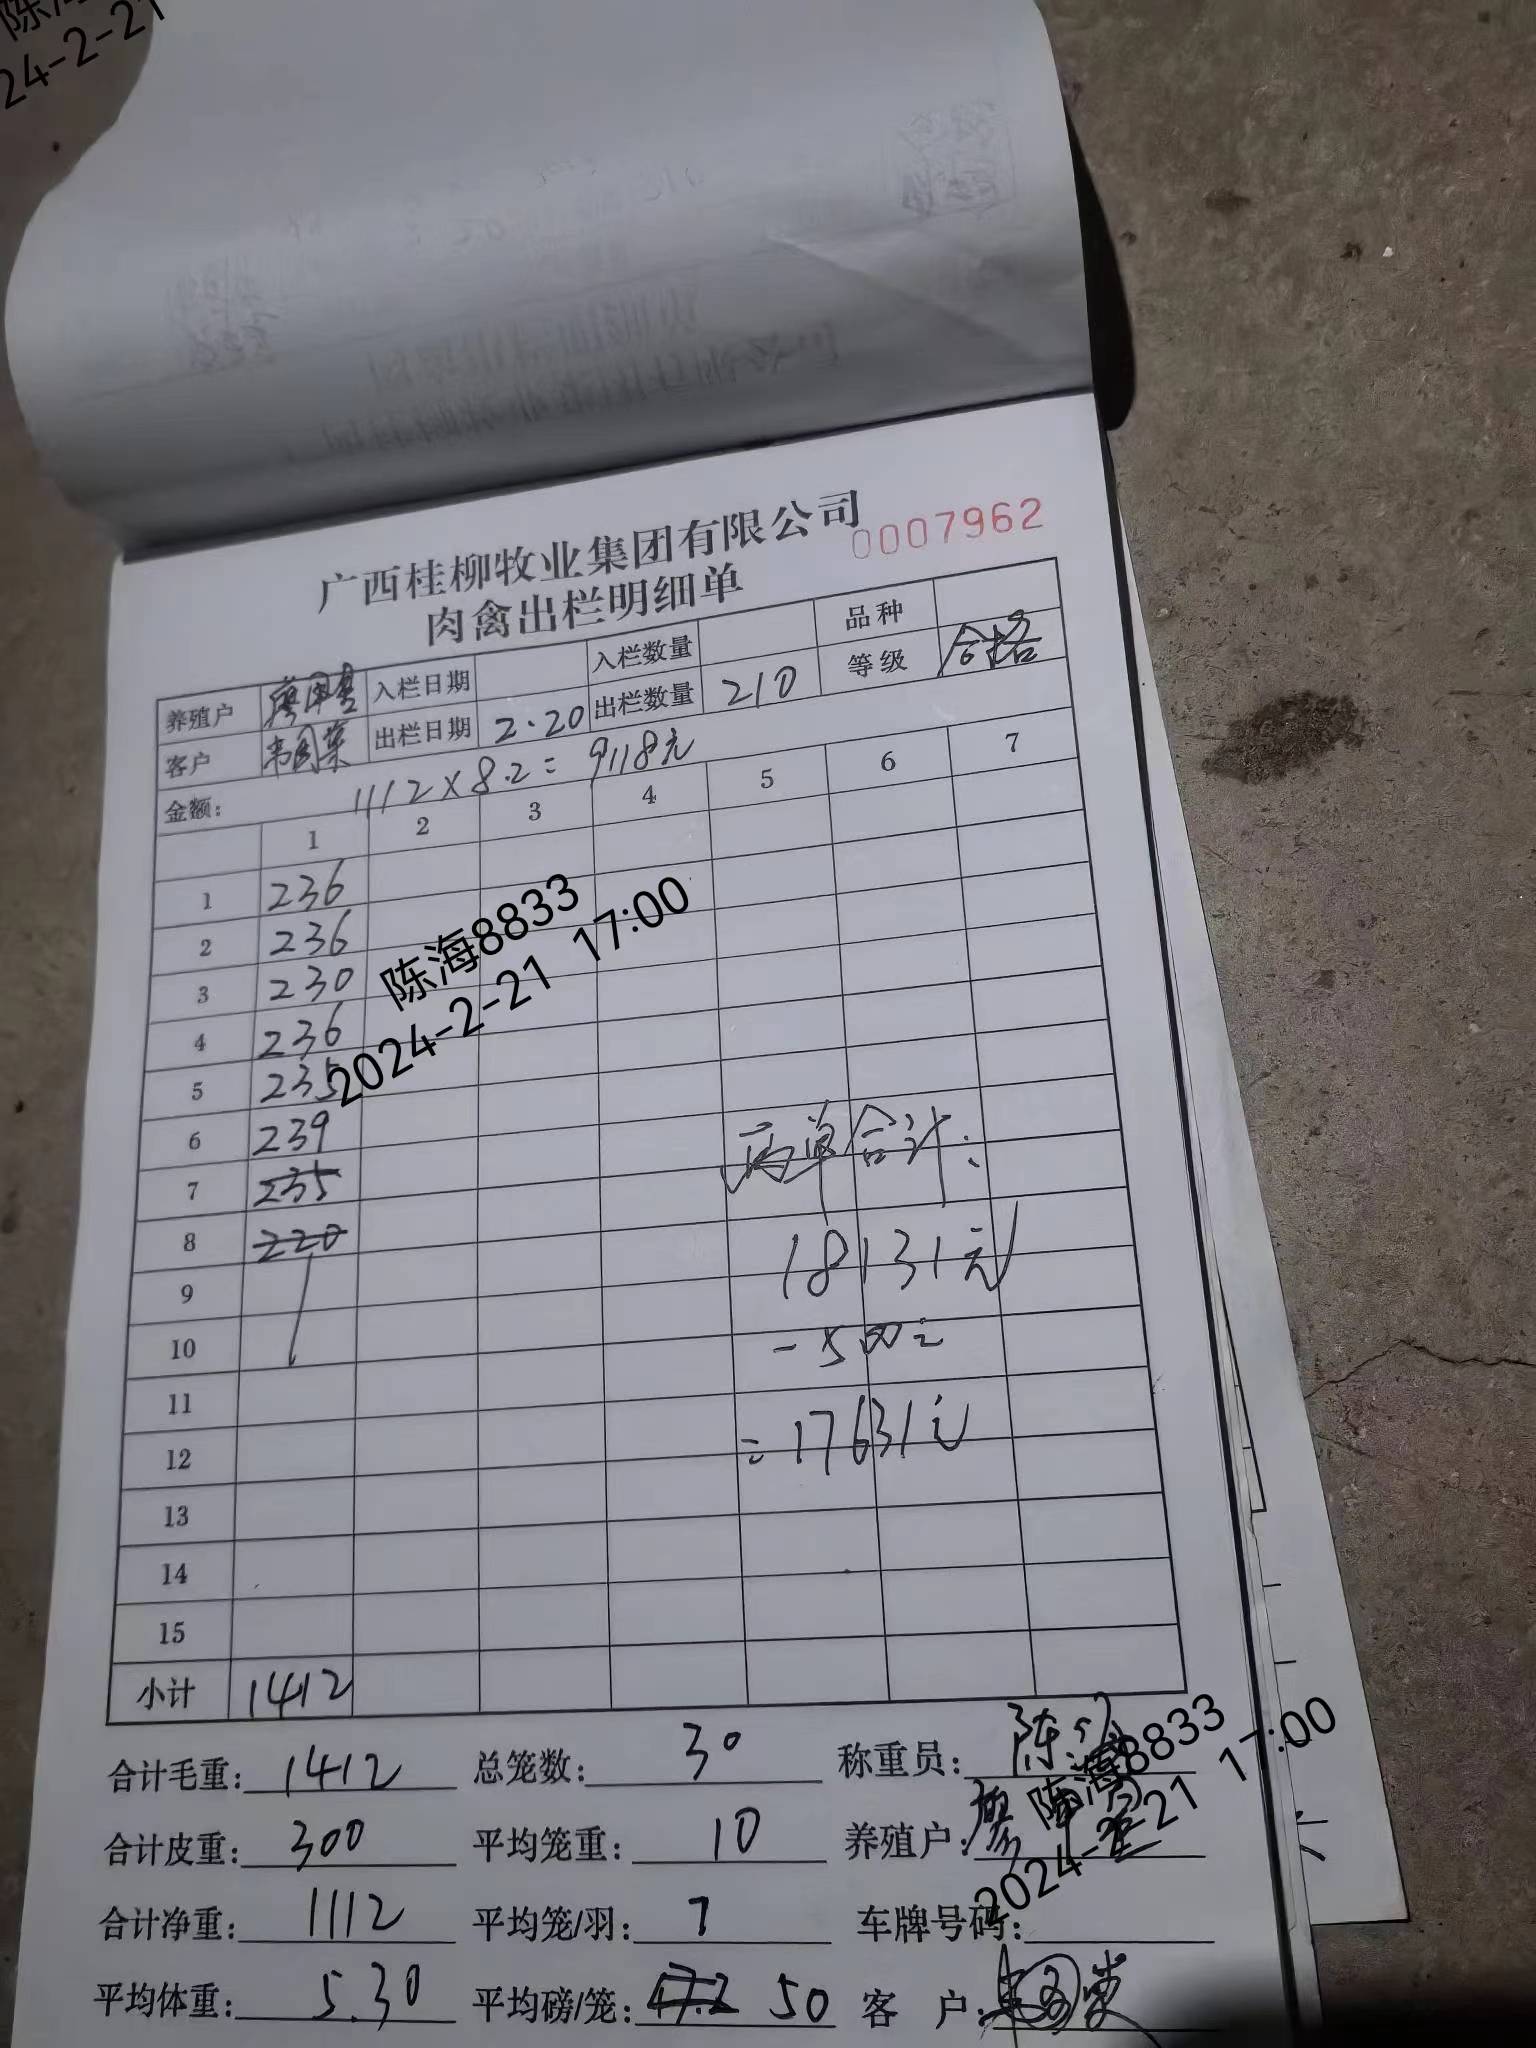 24-2-21
广西桂柳牧业集团有限公司
0007962
肉禽出栏明细单
养殖户 入栏日期 入栏数量 品种
客户 韦国荣 出栏日期 2·20 出栏数量 210 等级 合格
金额: 1112×8.2= 9118元
1 2 3 4 5 6 7
1 236
2 236
3 230
4 236
5 235
6 239
7 235
8 220
9
10
11
12
13
14
15
陈海8833
2024-2-21 17:00
两单合计:
18131元
-500元
=17631元
小计 1412
合计毛重: 1412 总笼数: 30 称重员: 陈海
合计皮重: 300 平均笼重: 10 养殖户:
合计净重: 1112 平均笼/羽: 7 车牌号码:
平均体重: 5.30 平均磅/笼: 47.2 50 客 户: 韦国荣
陈海8833
2024-2-21 17:00